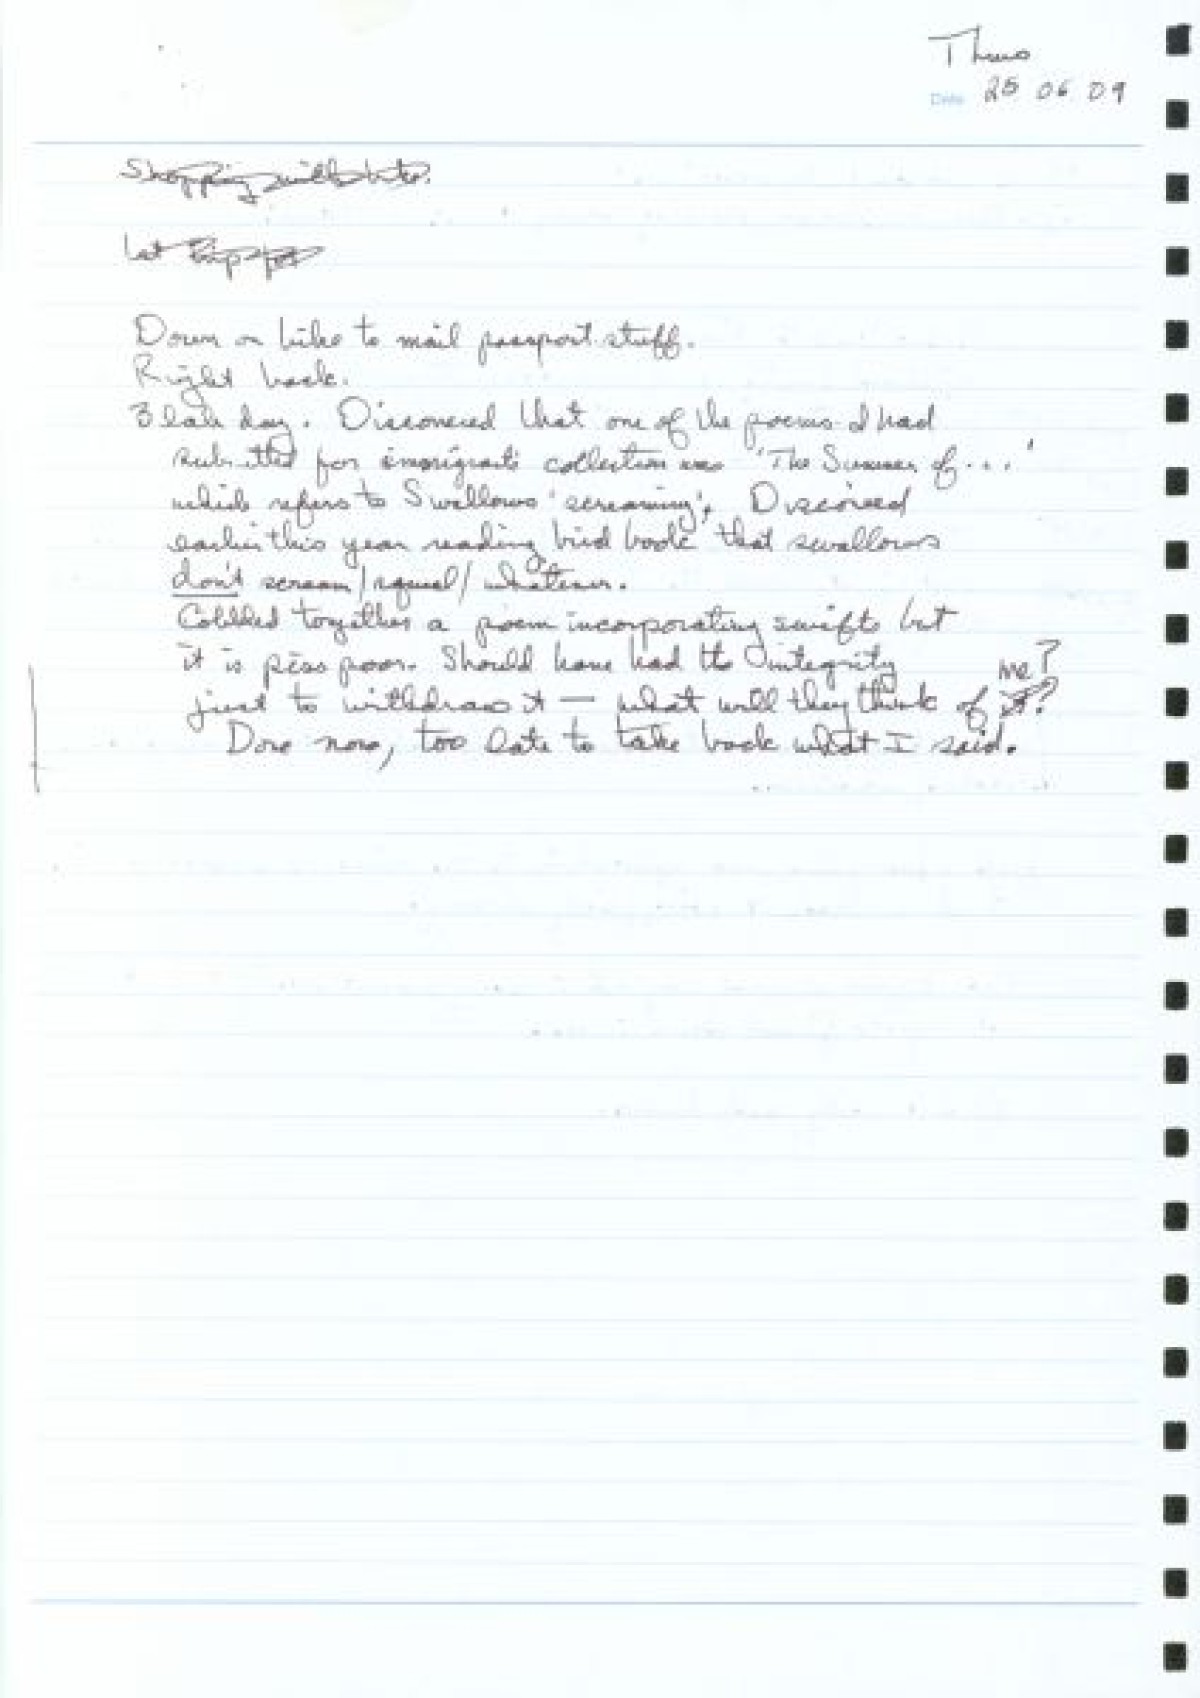 Thurs
Date 25 06 09
Shopping with bike.
1st trip
Down on bike to mail passport stuff.
Right back.
3 lab day. Discovered that one of the poems I had
submitted for immigrants collection was 'The Summer of...'
which refers to Swallows 'screaming'. Discovered
earlier this year reading bird book that swallows
don't scream/squeal/whatever.
Cobbled together a poem incorporating swifts but
it is piss poor. Should have had the integrity
just to withdraw it — what will they think of it? me?
Done now, too late to take back what I said.